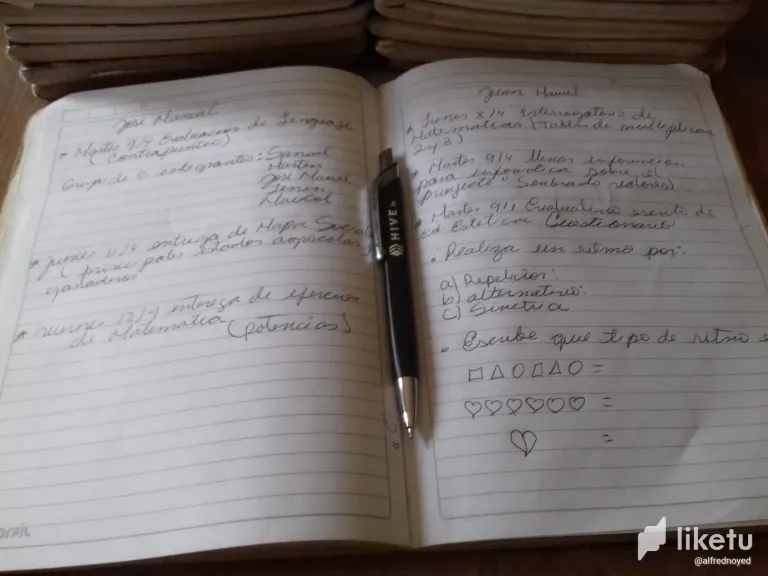 José Manuel
- Martes 9/4 Evaluación de Lenguaje
(Contrapunteo)
Grupo de 6 entegrantes: Samuel
Martin
José Manuel
Maikol
* jueves 11/4 entrega de Mapa Social
( principales estados agricolas
ganaderos
* viernes 12/4 entrega de ejercicios
de Matematica (potencias)
Juan Manuel
* Lunes 8/4 Interrogatorio de
Matematicas (Tablas de multiplicar
2 y 3)
* Martes 9/4 llevar informacion
para informatica sobre el
proyecto "Sembrado valores)
* Martes 9/4 escrito de
Ed Estetica Cuestionario
• Realiza un ritmo por:
a) Repeticion:
b) alternativo:
c) Simetria
• Escribe que tipo de ritmo e
=
=
=
HIVE
liketu
@alfrednoyed